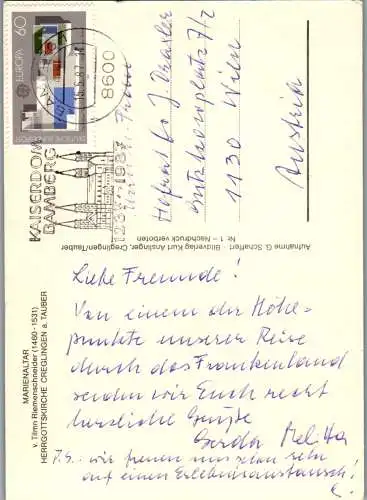 MARIENALTAR
v. Tilmn Riemenschneider (1460-1531)
HERRGOTTSKIRCHE CREGLINGEN a. TAUBER
Liebe Freunde!
Von einem der Höhe-
punkte unserer Reise
durch das Frankenland
senden wir Euch recht
herzliche Grüße
Gerda Melitta
P.S. wir freuen uns schon sehr
auf einen Erlebnisaustausch!
Aufnahme G. Schaffert - Bildverlag Kurt Anslinger, Creglingen/Tauber
Nr. 1 – Nachdruck verboten
60
EUROPA
DEUTSCHE BUNDESPOST
8600
KAISERDOM
BAMBERG
1237 1987
Familie
Hofrat
1130 Wien
Austria